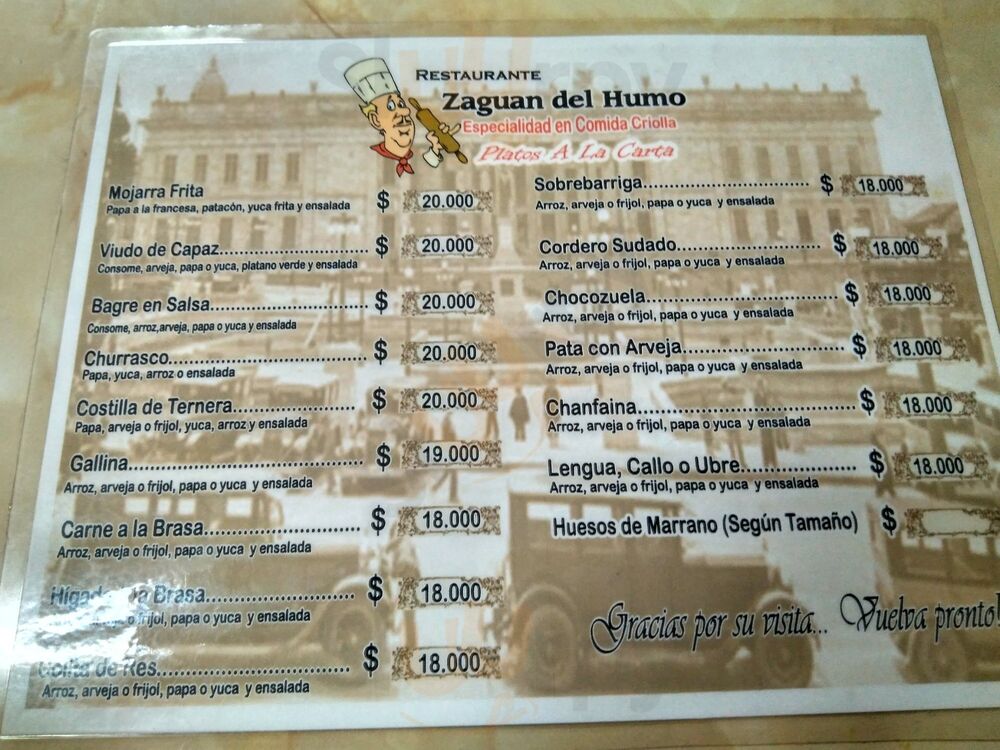 RESTAURANTE
Zaguan del Humo
Especialidad en Comida Criolla
Platos A La Carta
Mojarra Frita $ 20.000
Papa a la francesa, patacón, yuca frita y ensalada
Viudo de Capaz........................ $ 20.000
Consome, arveja, papa o yuca, platano verde y ensalada
Bagre en Salsa........................ $ 20.000
Consome, arroz,arveja, papa o yuca y ensalada
Churrasco........................ $ 20.000
Papa, yuca, arroz o ensalada
Costilla de Ternera........................ $ 20.000
Papa, arveja o frijol, yuca, arroz y ensalada
Gallina........................ $ 19.000
Arroz, arveja o frijol, papa o yuca y ensalada
Carne a la Brasa........................ $ 18.000
Arroz, arveja o frijol, papa o yuca y ensalada
Brasa........................ $ 18.000
o frijol, papa o yuca y ensalada
de Res........................ $ 18.000
Arroz, arveja o frijol, papa o yuca y ensalada
Sobrebarriga........................ $ 18.000
Arroz, arveja o frijol, papa o yuca y ensalada
Cordero Sudado........................ $ 18.000
Arroz, arveja o frijol, papa o yuca y ensalada
Chocozuela........................ $ 18.000
Arroz, arveja o frijol, papa o yuca y ensalada
Pata con Arveja........................ $ 18.000
Arroz, arveja o frijol, papa o yuca y ensalada
Chanfaina........................ $ 18.000
Arroz, arveja o frijol, papa o yuca y ensalada
Lengua, Callo o Ubre........................ $ 18.000
Arroz, arveja o frijol, papa o yuca y ensalada
Huesos de Marrano (Según Tamaño) $
Gracias por su visita... Vuelva pronto!